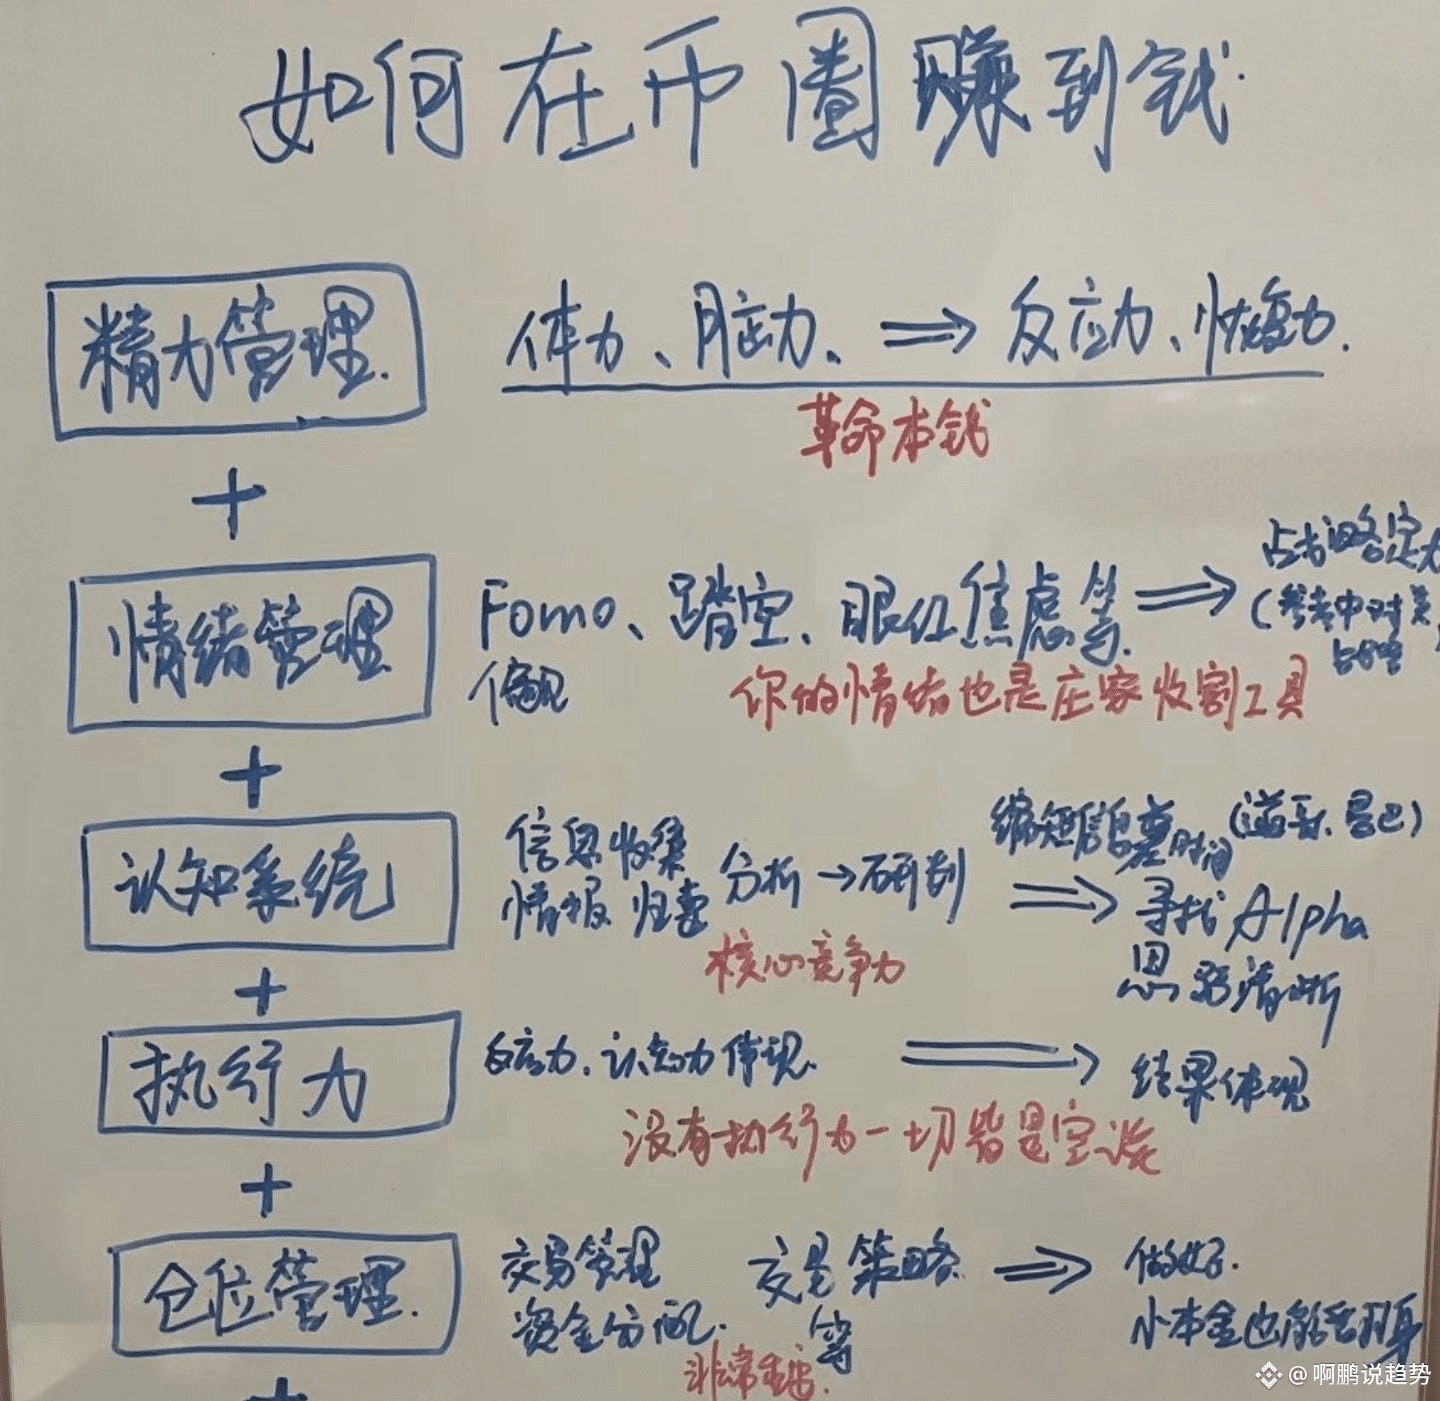 如何在币圈赚到钱.
精力管理. 体力、脑力、 ⟹ 反应力、恢复力.
革命本钱
+
战略定力
情绪管理 Fomo、踏空、眼红焦虑等. ⟹ (参考中对美
偏见 战略
你的情绪也是庄家收割工具
+
缩短信息差时间(
认知系统 信息收集 分析→研判 ⟹ 寻找Alpha
情报 归类 思路清晰
核心竞争力
+
执行力 反应力.认知力体现. ⟹ 结果体现
没有执行力一切皆是空谈
+
仓位管理. 交易管理 交易策略 ⟹ 做好.
资金分配. 等 小本金也能翻身
非常重要.
+
@啊鹏说趋势